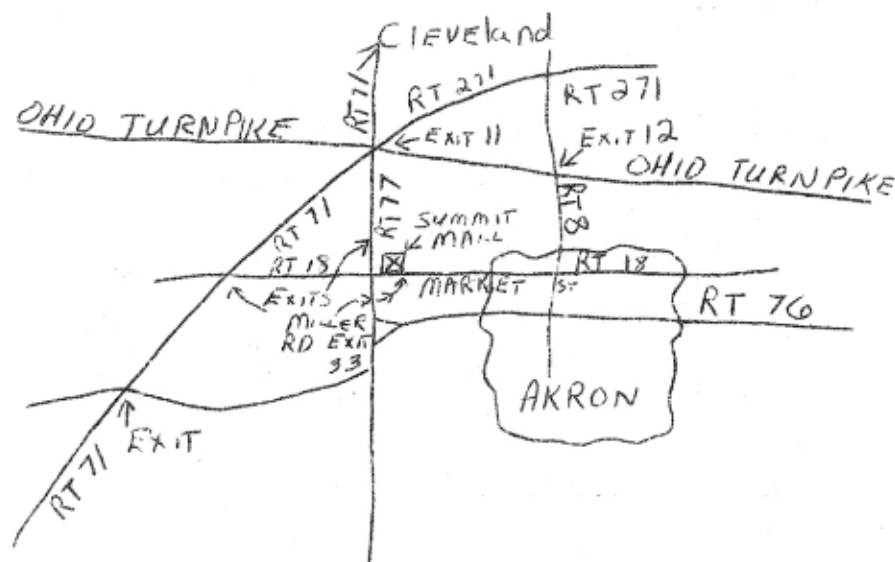 Cleveland
RT 71
RT 271
RT 271
OHIO TURNPIKE
EXIT 11
EXIT 12
OHIO TURNPIKE
RT 71
RT 77
RT 8
SUMMIT
MALL
RT 18
RT 18
EXITS
MARKET ST
MILLER
RD EXIT
33
RT 76
AKRON
EXIT
RT 71